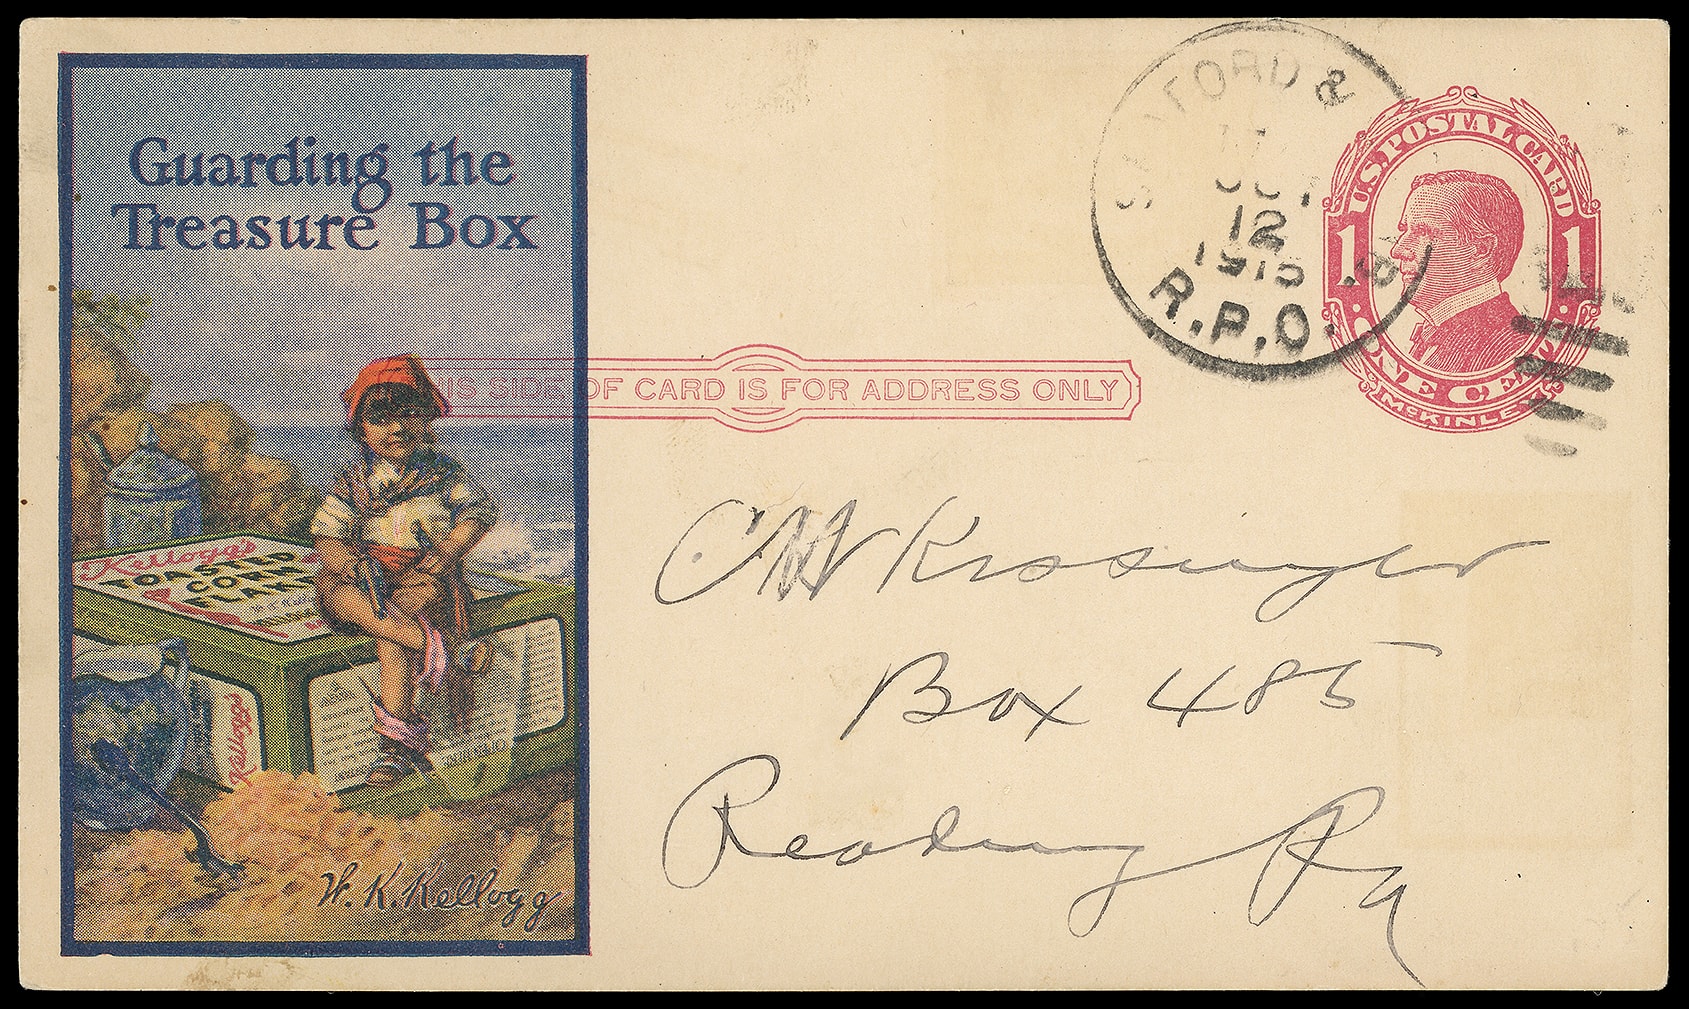 Guarding the
Treasure Box
Kellogg's
TOASTED
CORN
FLAKE
Kellogg's
W. K. Kellogg
IS SIDE OF CARD IS FOR ADDRESS ONLY
FORD &
12
R.P.O.
U.S. POSTAL CARD
1 1
ONE CENT
McKINLEY
C W Kissinger
Box 485
Reading Pa